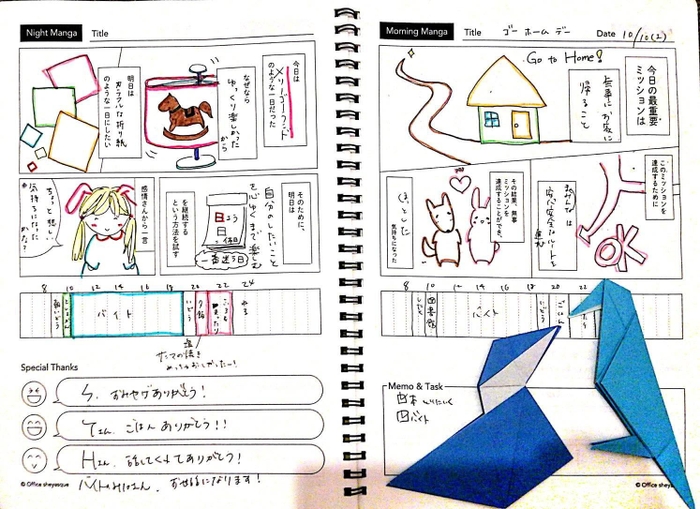 Night Manga Title
今日は
メリーゴーランド
のような一日だった
なぜなら
ゆっくり楽しかった
から
明日は
カラフルな折り紙
のような一日にしたい
そのために、
明日は
自分のしたいこと
を心ゆくまで楽しむ
を継続する
という方法を試す
日よう
日
感情さんから一言
ちょっと悲しい
気持ちになった
かな?
8 10 12 14 16 18 20 22 24
バイト
いどう
夕飯
ねる
Special Thanks
おみやげありがとう!
Yさん、ごはんありがとう!!
Hさん、話してくれてありがとう!
おせわになります!
© Office sheyanque
Morning Manga Title ゴー ホーム デー Date 10/10(2)
Go to Home!
今日の最重要
ミッションは
無事にお家に
帰ること
このミッションを
達成するために
安心安全なルートを
OK
その結果、無事
ミッションを
達成することができ、
くすっとした
気持ちになった
8 10 12 14 16 18 20 22
したく
図書館
バイト
いどう
ごはん
Memo & Task
バイト
© Office sheyanque